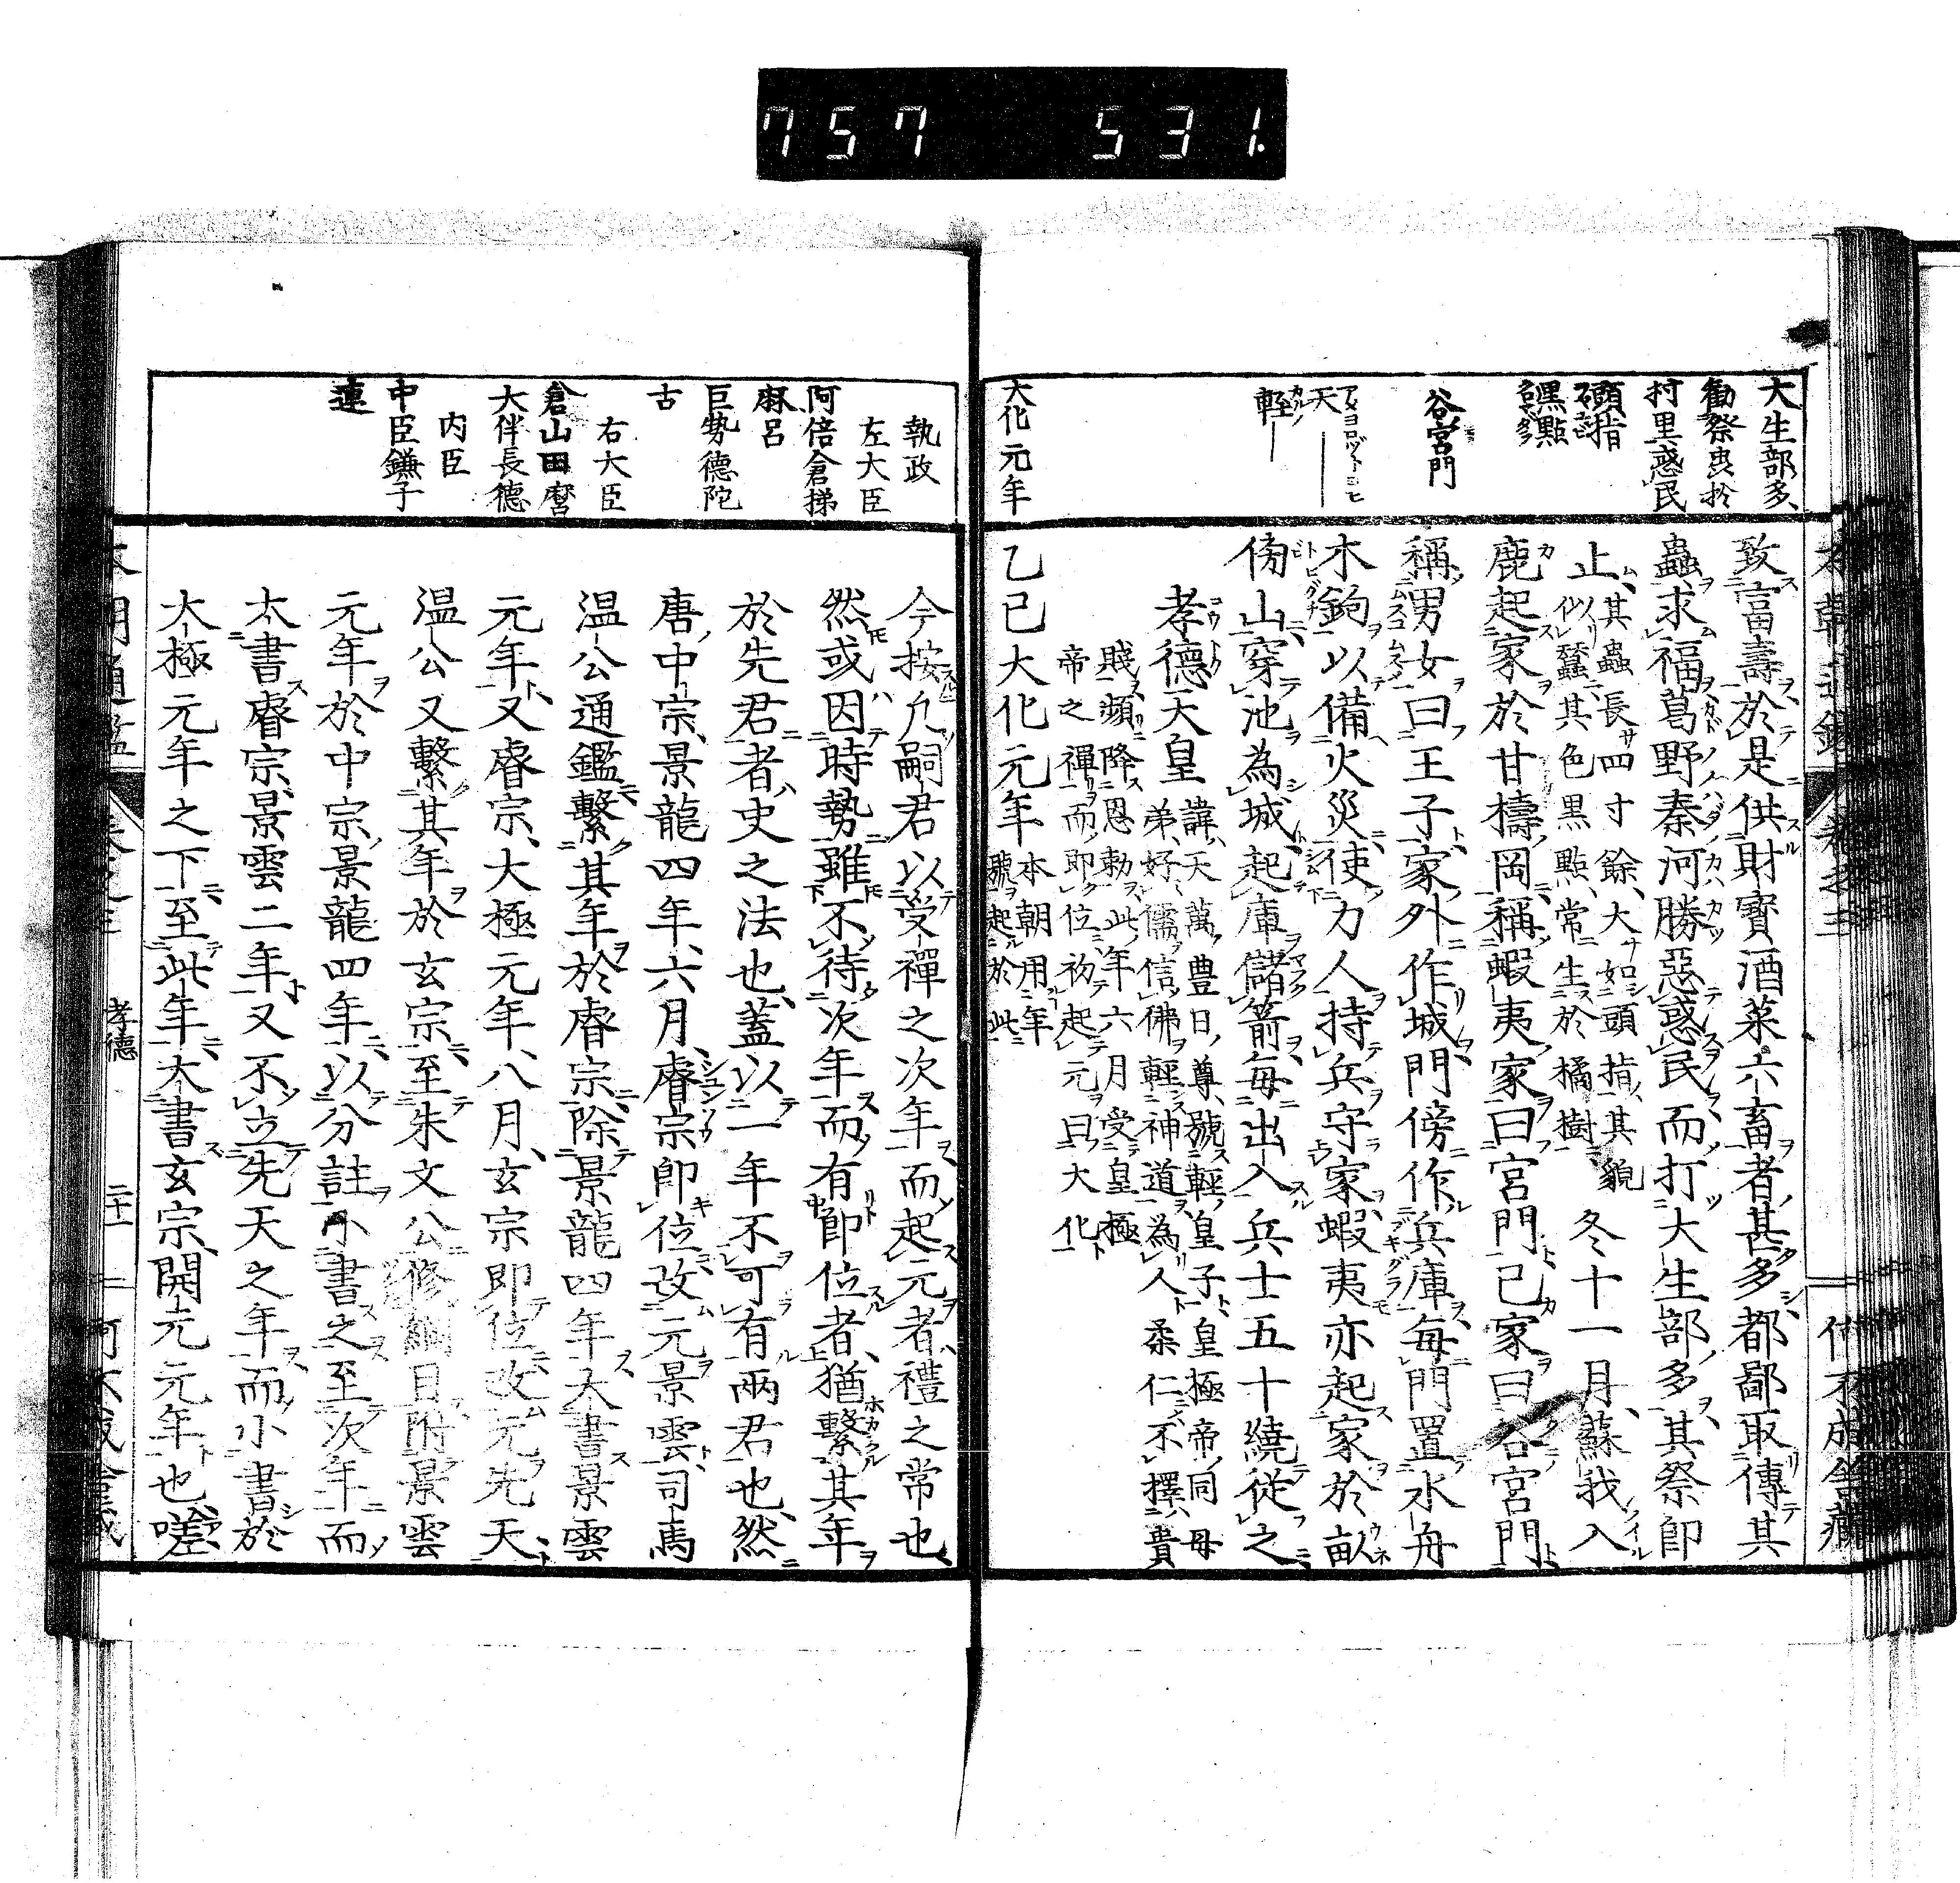 757 531.
大生部多
勸祭虫於
村里惑民
頭指
黑點
谷宮門
天
アメヨロヅトヨヒ
輕
カル
大化元年
致富壽於是供財寶酒菜六畜者甚多都鄙取傳其
蟲求福葛野秦河勝惡惑民而打大生部多其祭即
止其蟲長四寸餘大如頭指其貌
似蠶其色黑點常生於橘樹
冬十一月蘇我入
鹿起家於甘檮岡稱蝦夷家曰宮門己家曰谷宮門
稱男女曰王子家外作城門傍作兵庫每門置水舟
木鉤以備火災使力人持兵守家蝦夷亦起家於畝
傍山穿池為城起庫儲箭每出入兵士五十繞從之
孝德天皇
諱天萬豊日尊號輕皇子皇極帝同母
弟好儒信佛輕神道為人柔仁不擇貴
賤頻降恩勅此年六月受皇極
帝之禪而即位初起元曰大化
乙巳大化元年
本朝用年
號起於此
執政
左大臣
阿倍倉梯
麻呂
巨勢德陀
古
右大臣
倉山田麿
大伴長德
內臣
中臣鎌子
連
今按允嗣君以受禪之次年而起元者禮之常也
然或因時勢雖不待次年而有即位者猶繫其年
於先君者史之法也蓋以一年不可有兩君也然
唐中宗景龍四年六月睿宗即位改元景雲司馬
温公通鑑繫其年於睿宗除景龍四年大書景雲
元年又睿宗大極元年八月玄宗即位改元先天
温公又繫其年於玄宗至朱文公修綱目附景雲
元年於中宗景龍四年以分註小書之至次年而
大書睿宗景雲二年又不立先天之年而小書於
太極元年之下至此年大書玄宗開元元年也嗟
孝德
二十一